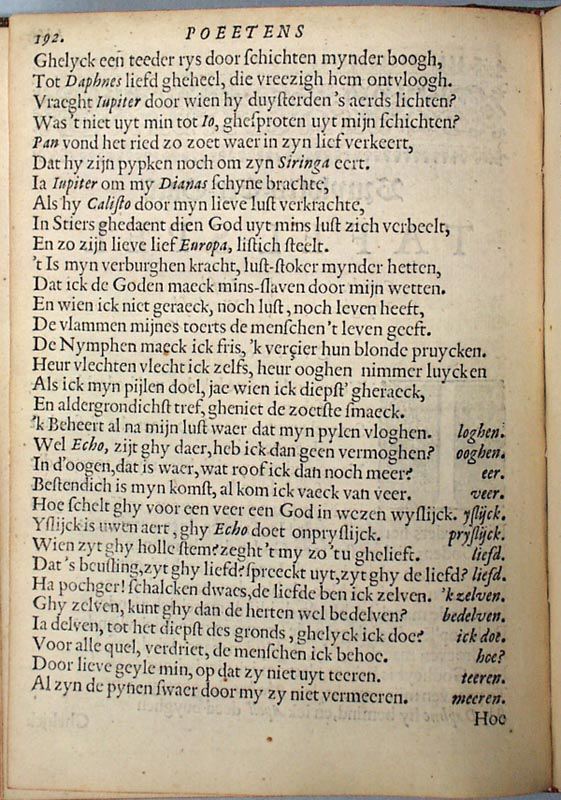 192. POEETENS
Ghelyck een teeder rys door schichten mynder boogh,
Tot Daphnes liefd gheheel, die vreezigh hem ontvloogh.
Vraeght Iupiter door wien hy duysterden 's aerds lichten?
Was 't niet uyt min tot Io, ghesproten uyt mijn schichten?
Pan vond het ried zo zoet waer in zyn lief verkeert,
Dat hy zijn pypken noch om zyn Siringa eert.
Ia Iupiter om my Dianas schyne brachte,
Als hy Calisto door myn lieve lust verkrachte,
In Stiers ghedaent dien God uyt mins lust zich verbeelt,
En zo zijn lieve lief Europa, listich steelt.
't Is myn verburghen kracht, lust-stoker mynder hetten,
Dat ick de Goden maeck mins-slaven door mijn wetten.
En wien ick niet geraeck, noch lust, noch leven heeft,
De vlammen mijnes toerts de menschen 't leven geeft.
De Nymphen maeck ick fris, 'k verçier hun blonde pruycken.
Heur vlechten vlecht ick zelfs, heur ooghen nimmer luycken
Als ick myn pijlen doel, jae wien ick diepst' gheraeck,
En aldergrondichst tref, gheniet de zoetste smaeck.
'k Beheert al na mijn lust waer dat myn pylen vloghen. loghen.
Wel Echo, zijt ghy daer, heb ick dan geen vermoghen? ooghen.
In d'oogen, dat is waer, wat roof ick dan noch meer? eer.
Bestendich is myn komst, al kom ick vaeck van veer. veer.
Hoe schelt ghy voor een veer een God in wezen wyslijck. yslijck.
Yslijck is uwen aert, ghy Echo doet onpryslijck. pryslijck.
Wien zyt ghy holle stem? zeght 't my zo 'tu ghelieft. liefd.
Dat 's beusling, zyt ghy liefd? spreeckt uyt, zyt ghy de liefd? liefd.
Ha pochger! schalcken dwaes, de liefde ben ick zelven. 'k zelven.
Ghy zelven, kunt ghy dan de herten wel bedelven? bedelven.
Ia delven, tot het diepst des gronds, ghelyck ick doe? ick doe.
Voor alle quel, verdriet, de menschen ick behoe. hoe?
Door lieve geyle min, op dat zy niet uyt teeren. teeren.
Al zyn de pynen swaer door my zy niet vermeeren. meeren.
Hoe